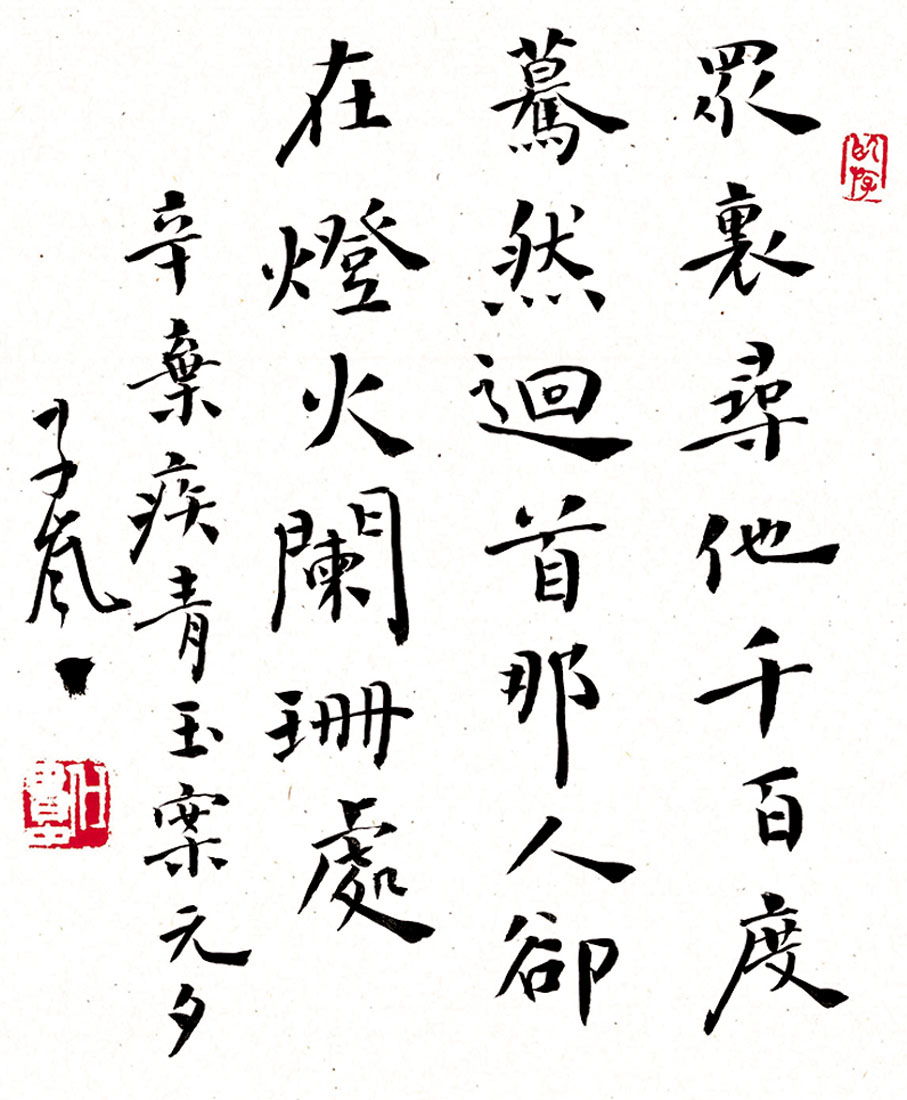 眾裏尋他千百度
驀然迴首那人卻
在燈火闌珊處
辛棄疾青玉案元夕